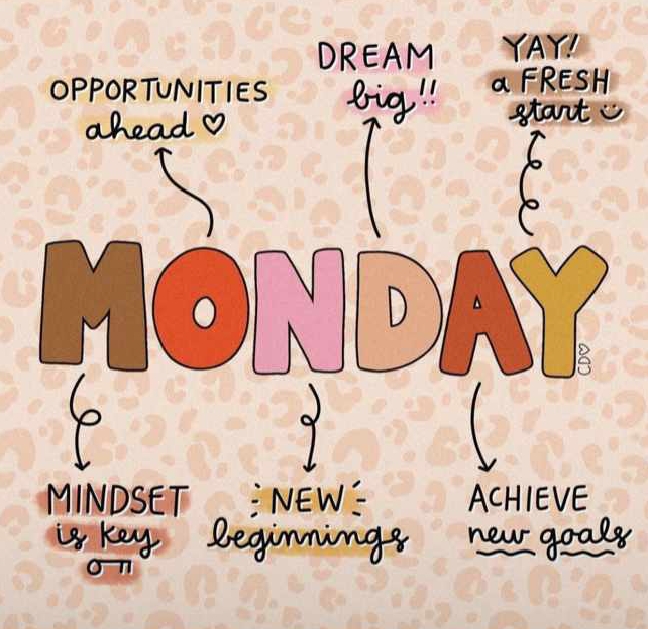 OPPORTUNITIES
ahead ♡
DREAM
big!!
YAY!
a FRESH
start ☺
MONDAY
CD♡
MINDSET
is key
NEW
beginnings
ACHIEVE
new goals